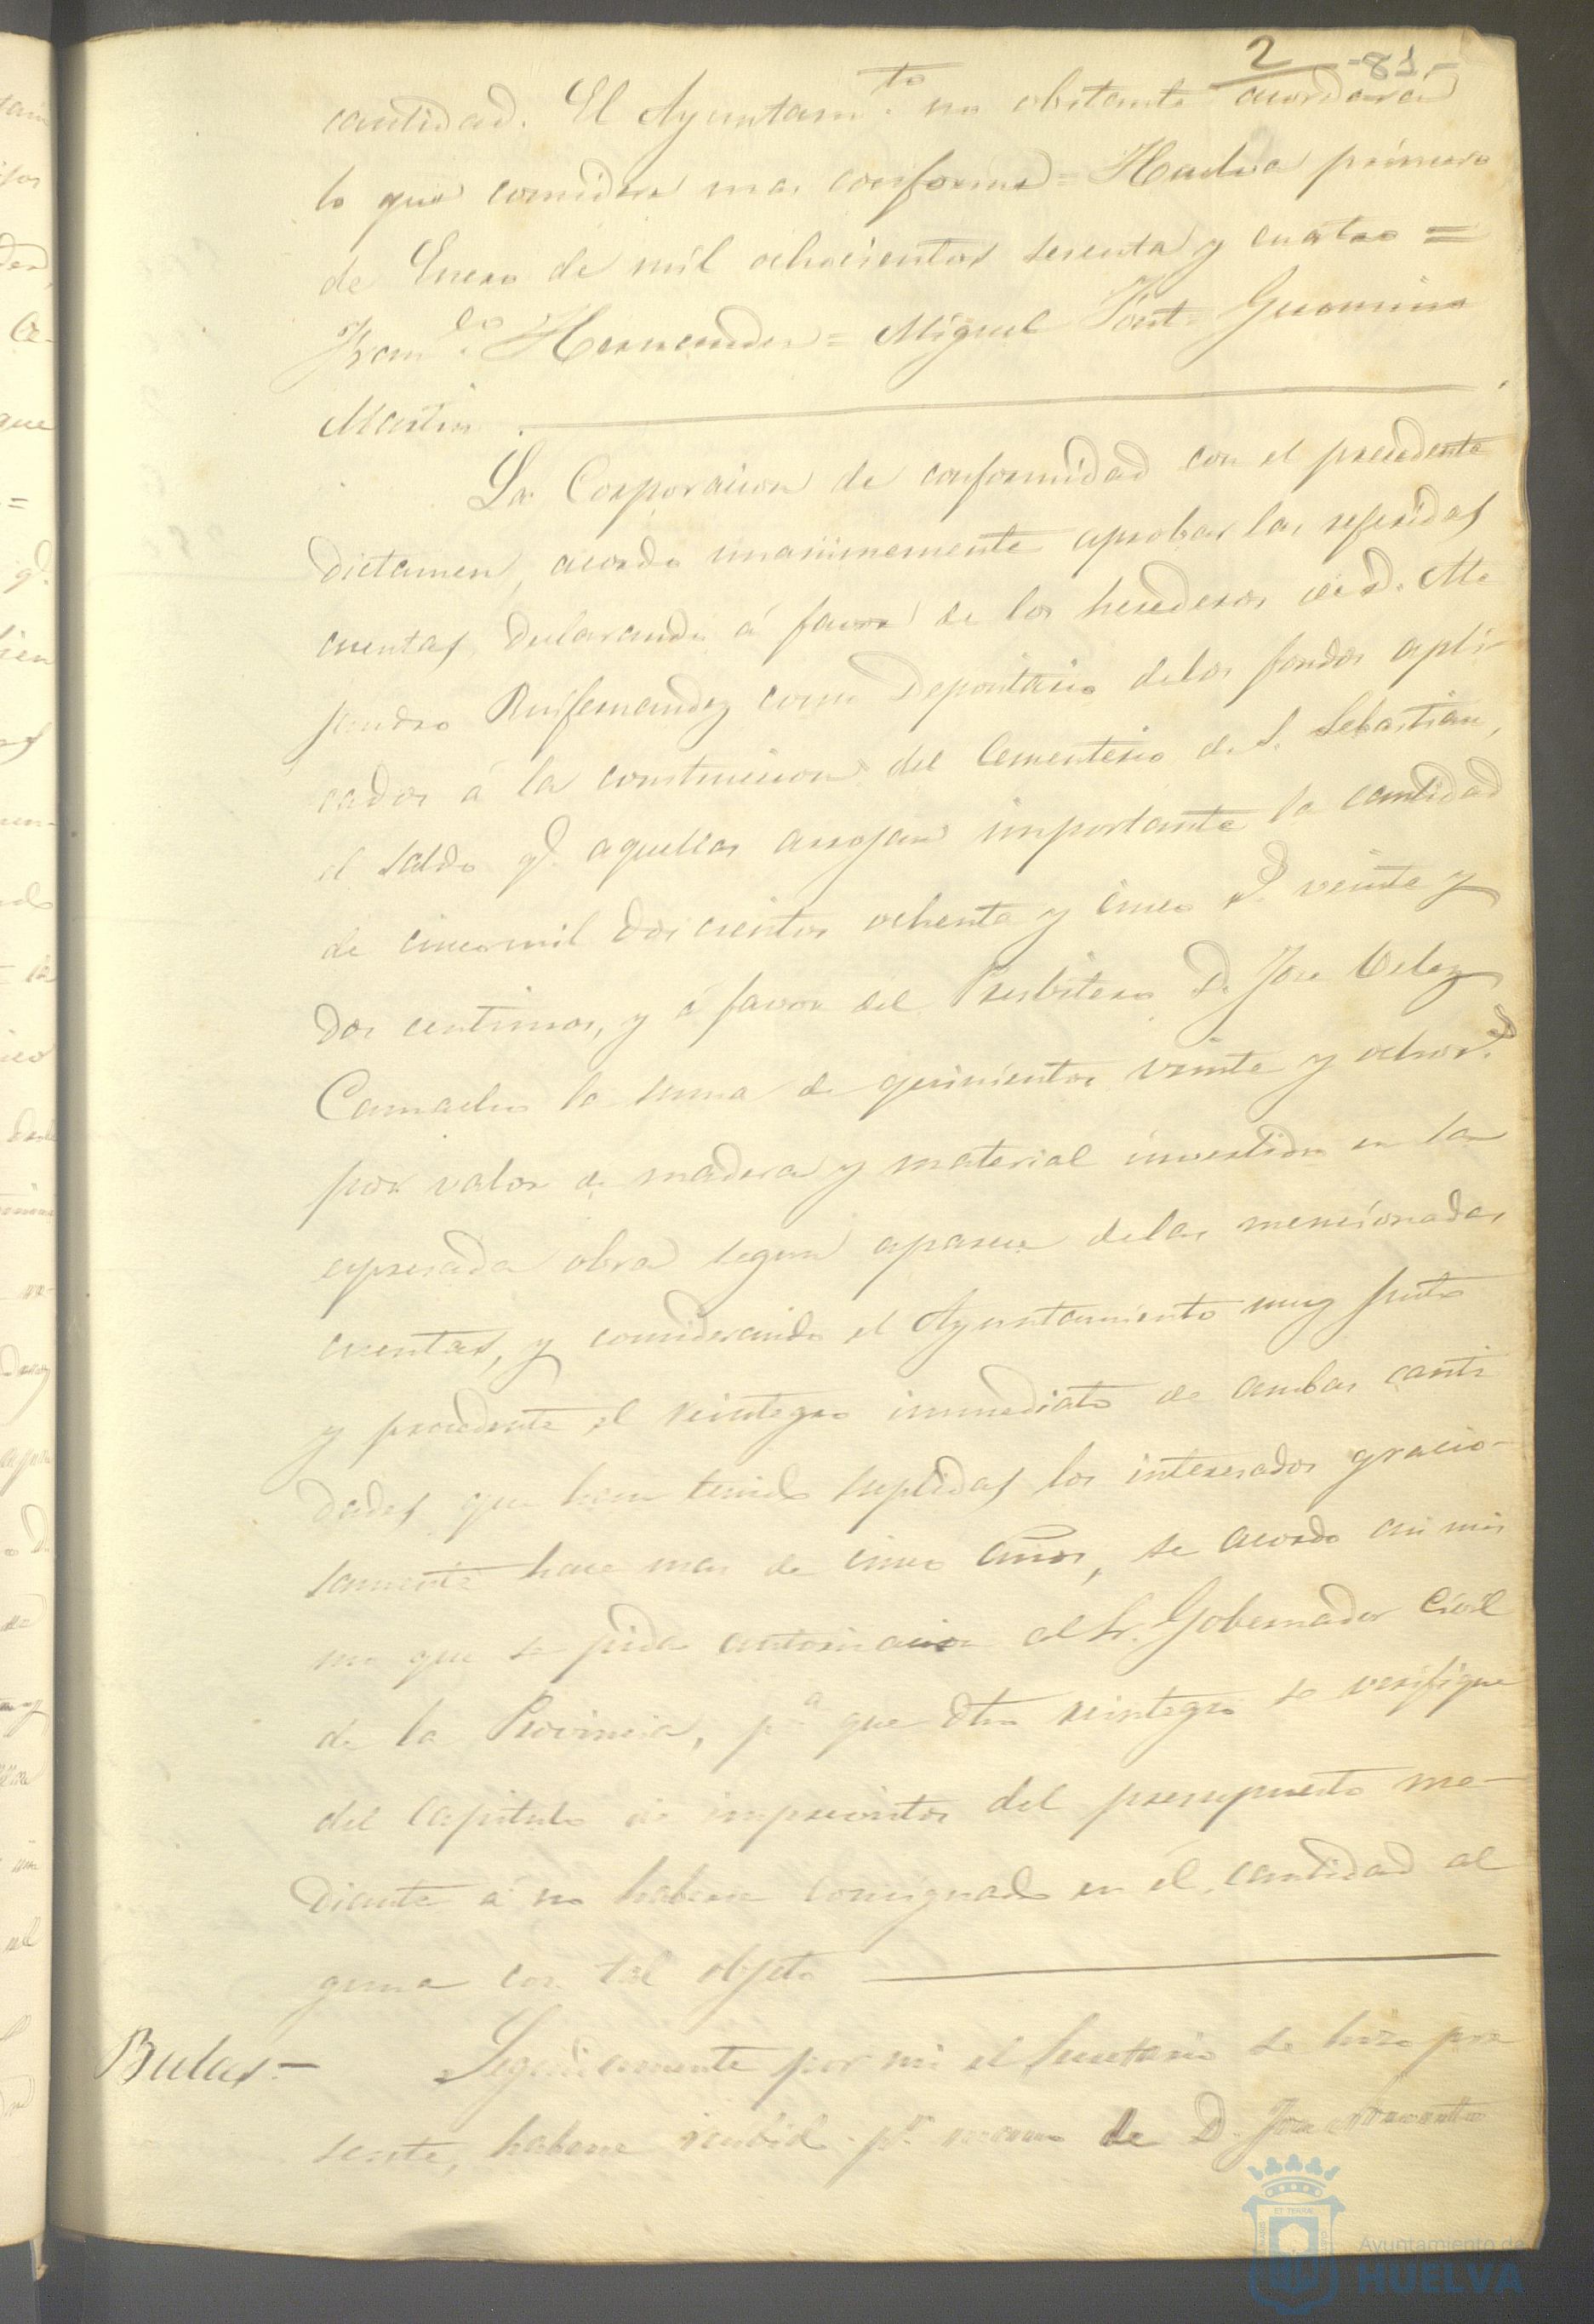 2 -81-
cantidad. El Ayuntam.to no obstante acordará
lo que considere mas conforme = Huelva primero
de Enero de mil ochocientos sesenta y cuatro =
Fran.co Hernandez = Miguel Font = Geronimo
Martin.
La Corporacion de conformidad con el precedente
dictamen, acordo unanimemente aprobar las referidas
cuentas, declarando á favor de los herederos de D. Ale
jandro Ruifernandez como Depositario de los fondos apli-
cados á la construccion del Cementerio de S. Sebastian,
el saldo q.e aquellas arrojan importante la cantidad
de cinco mil doscientos ochenta y cinco r.s veinte y
dos centimos, y á favor del Presbitero D. Jose Velez
Camacho la suma de quinientos veinte y ocho r.s
por valor de madera y material invertido en la
espresada obra segun aparece de las mencionadas
cuentas, y considerando el Ayuntamiento muy justo
y procedente el reintegro inmediato de ambas canti
dades que han tenido suplidas los interesados gracio-
samente hace mas de cinco años, se acordo asi mis
mo que se pida autorizacion al Sr. Gobernador Civil
de la Provincia, p.a que dho reintegro se verifique
del Capitulo de imprevistos del presupuesto me-
diante á no haberse consignado en él cantidad al
guna con tal objeto
Bulas.- Seguidamente por mi el Secretario se hizo pre
sente, haberse recibido p.r mano de D. Jose
Ayuntamiento de
HUELVA